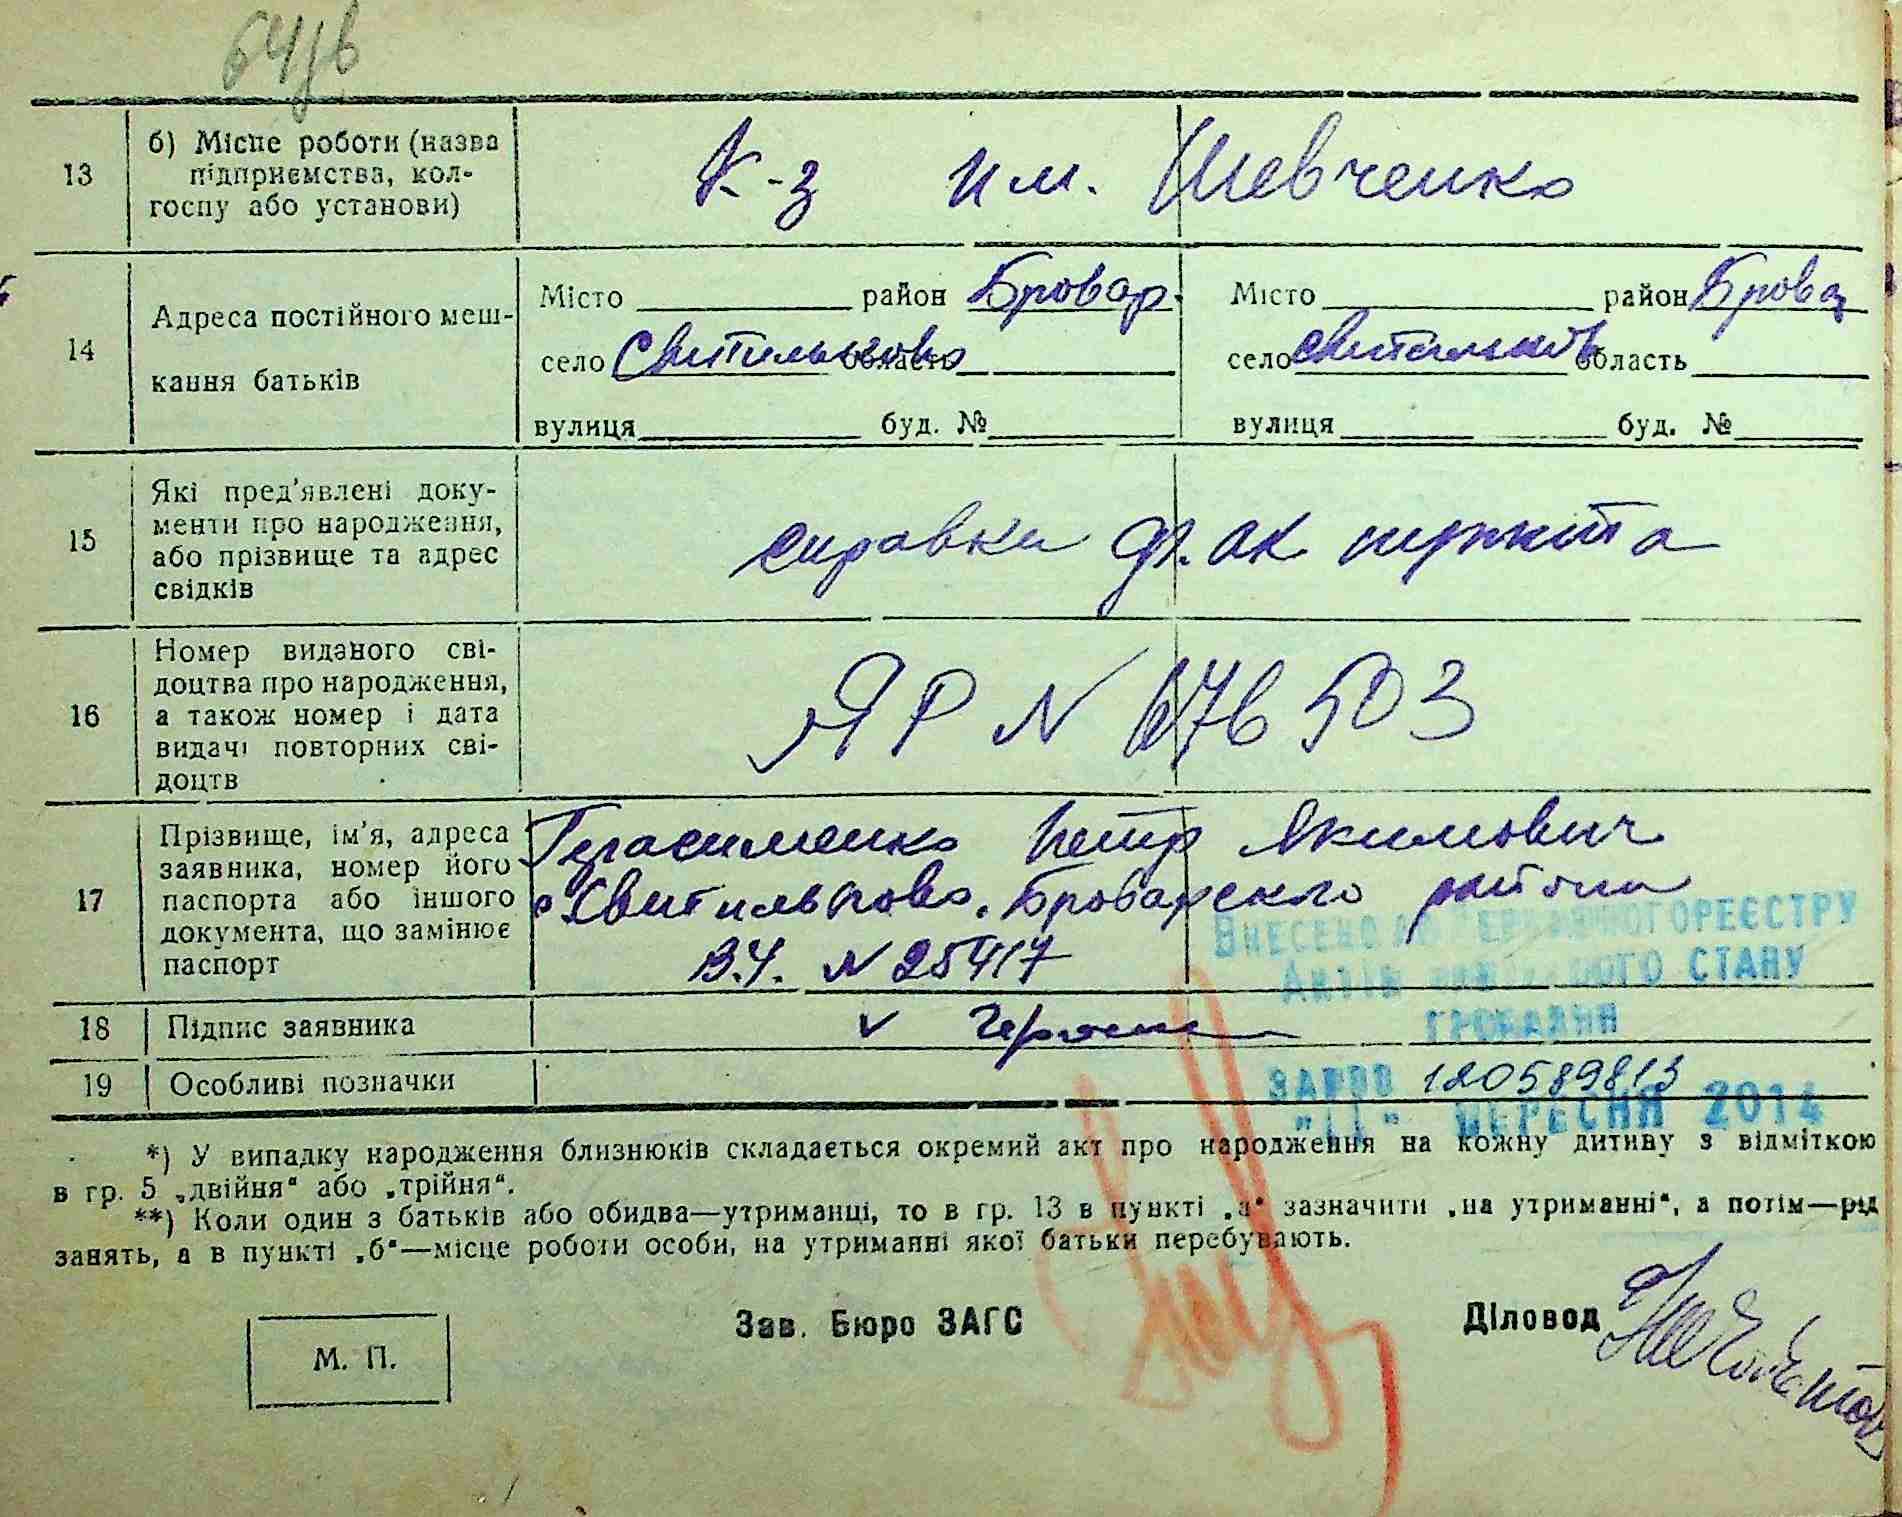 13
б) Місце роботи (назва
підприємства, кол-
госпу або установи)
К-з им. Шевченко
14
Адреса постійного меш-
кання батьків
Місто район Бровар.
село Свитильново область
вулиця буд. №
Місто район Бровар
село Свитильнов область
вулиця буд. №
15
Які пред'явлені доку-
менти про народження,
або прізвище та адрес
свідків
справки
16
Номер виданого сві-
доцтва про народження,
а також номер і дата
видачі повторних сві-
доцтв
ЯР N 676503
17
Прізвище, ім'я, адреса
заявника, номер його
паспорта або іншого
документа, що замінює
паспорт
Герасименко Петр Якимович
с Свитильново, Броварского района
В.Ч. N 25417
Внесено до Державного реєстру
актів цивільного стану
громадян
18 Підпис заявника
v Герасим
19 Особливі позначки
за №00 120589813
"11" вересня 2014
*) У випадку народження близнюків складається окремий акт про народження на кожну дитину з відміткою
в гр. 5 „двійня“ або „трійня“.
**) Коли один з батьків або обидва—утриманці, то в гр. 13 в пункті „а“ зазначити „на утриманні“, а потім—рід
занять, а в пункті „б“—місце роботи особи, на утриманні якої батьки перебувають.
М. П.
Зав. Бюро ЗАГС
Діловод